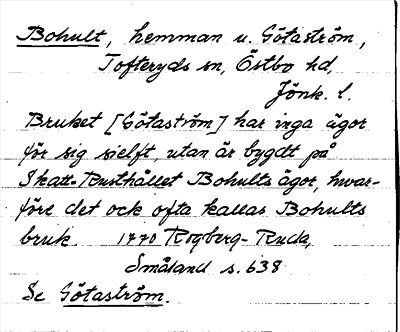 Bohult, hemman u. Götaström,
Tofteryds sn, Östbo hd,
Jönk. l.
Bruket [Götaström] har inga ägor
för sig sielft, utan är bygdt på
Skatt-Rusthållet Bohults ägor, hwar-
före det ock ofta kallas Bohults
bruk. 1770 Rogberg-Ruda,
Småland s. 638
Se Götaström.